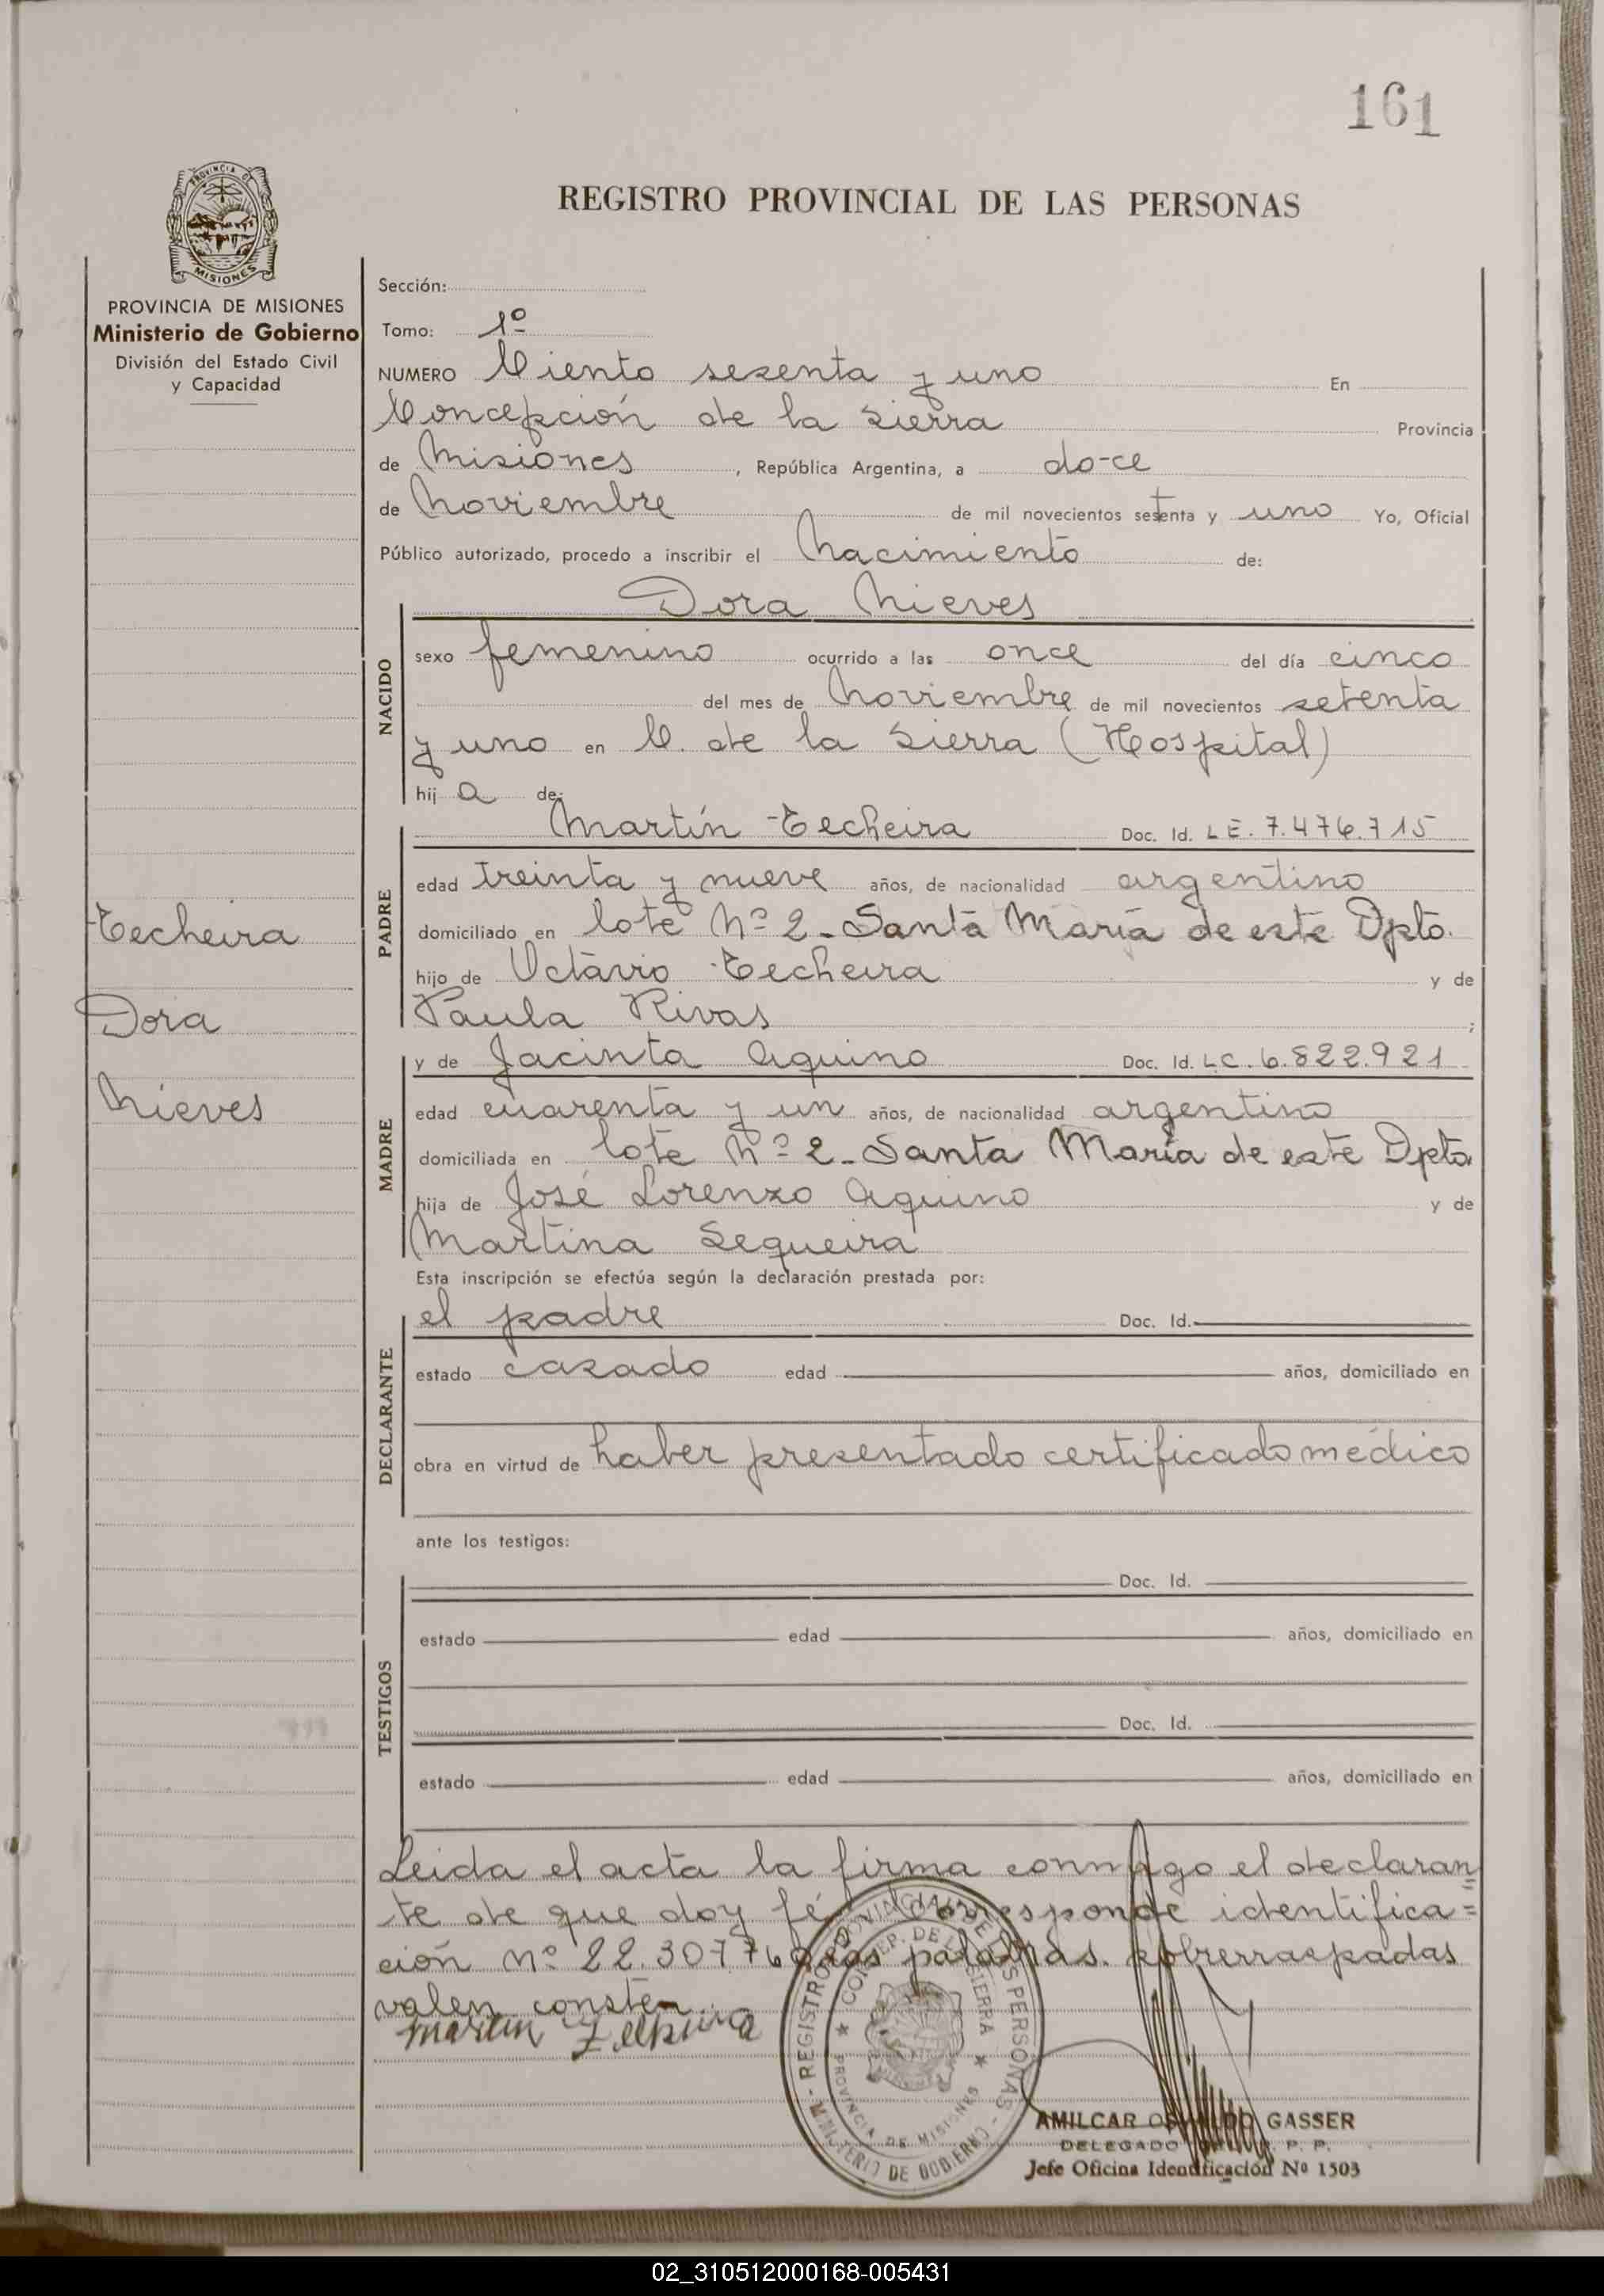 161
REGISTRO PROVINCIAL DE LAS PERSONAS
PROVINCIA DE MISIONES
Ministerio de Gobierno
División del Estado Civil
y Capacidad
Techeira
Dora
Nieves
Sección:
Tomo: 1º
NUMERO Ciento sesenta y uno En
Concepción de la Sierra Provincia
de Misiones, República Argentina, a doce
de Noviembre de mil novecientos setenta y uno Yo, Oficial
Público autorizado, procedo a inscribir el Nacimiento de:
NACIDO
Dora Nieves
sexo femenino ocurrido a las once del día cinco
del mes de Noviembre de mil novecientos setenta
y uno en C. de la Sierra (Hospital)
hij a de:
PADRE
Martín Techeira Doc. Id. L E. 7.476.715
edad treinta y nueve años, de nacionalidad argentino
domiciliado en lote Nº 2 - Santa María de este Dpto.
hijo de Octavio Techeira y de
Paula Rivas ;
MADRE
y de Jacinta Aquino Doc. Id. L C. 6.822.921
edad cuarenta y un años, de nacionalidad argentino
domiciliada en lote Nº 2 - Santa María de este Dpto.
hija de José Lorenzo Aquino y de
Martina Sequeira
Esta inscripción se efectúa según la declaración prestada por:
DECLARANTE
el padre Doc. Id.
estado casado edad años, domiciliado en
obra en virtud de haber presentado certificado médico
ante los testigos:
TESTIGOS
Doc. Id.
estado edad años, domiciliado en
Doc. Id.
estado edad años, domiciliado en
Leida el acta la firma conmigo el declaran=
te de que doy fé corresponde identifica=
ción Nº 22.307.76 palabras sobrerraspadas
valen consten.
Martin Techeira
REGISTRO PROVINCIAL DE LAS PERSONAS - MINISTERIO DE GOBIERNO -
CONCEP. DE LA SIERRA ★ PROVINCIA DE MISIONES ★
AMILCAR OSVALDO GASSER
DELEGADO R. P. P.
Jefe Oficina Identificación Nº 1503
02_310512000168-005431